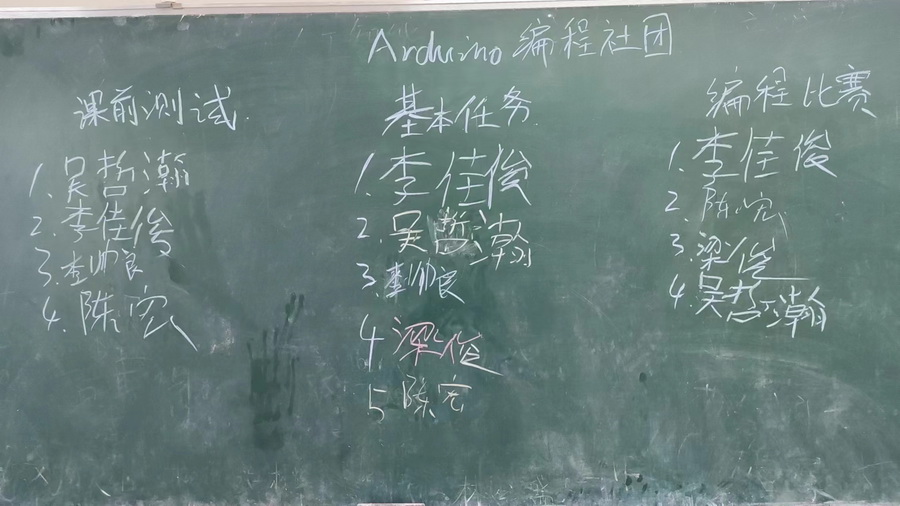 Arduino编程社团
课前测试
1.吴哲瀚
2.李佳俊
3.李帅良
4.陈宏
基本任务
1.李佳俊
2.吴哲瀚
3.李帅良
4.梁俊
5.陈宏
编程比赛
1.李佳俊
2.陈宏
3.梁俊
4.吴哲瀚